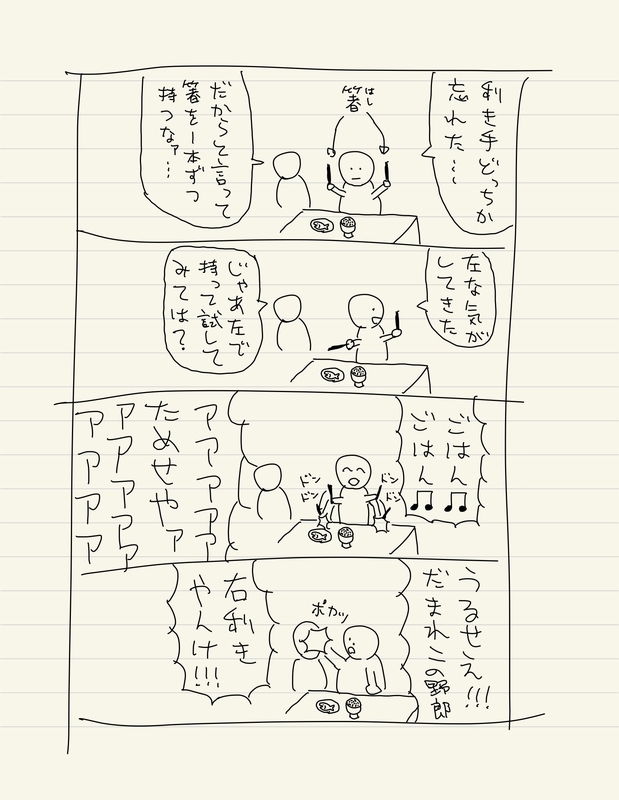 利き手どっちか
忘れた…
箸
はし
だからと言って
箸を一本ずつ
持つなァ…
左な気が
してきた
じゃあ左で
持って試して
みては？
ごはん
ごはん♫♫
ドン
ドン
ドン
ドン
アアアアアア
ためせやァ
アアアアアア
アアアアア
うるせえ!!!
だまれこの野郎
ポカッ
右利き
やんけ!!!